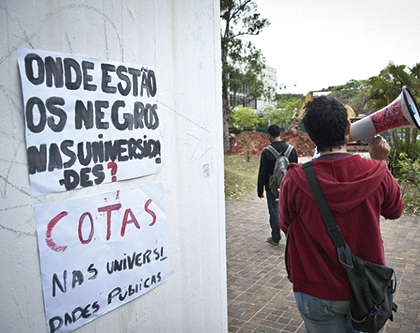 ONDE ESTÃO
OS NEGROS
NAS UNIVERSIDA
DES?
COTAS
NAS UNIVERSI
DADES PUBLICAS